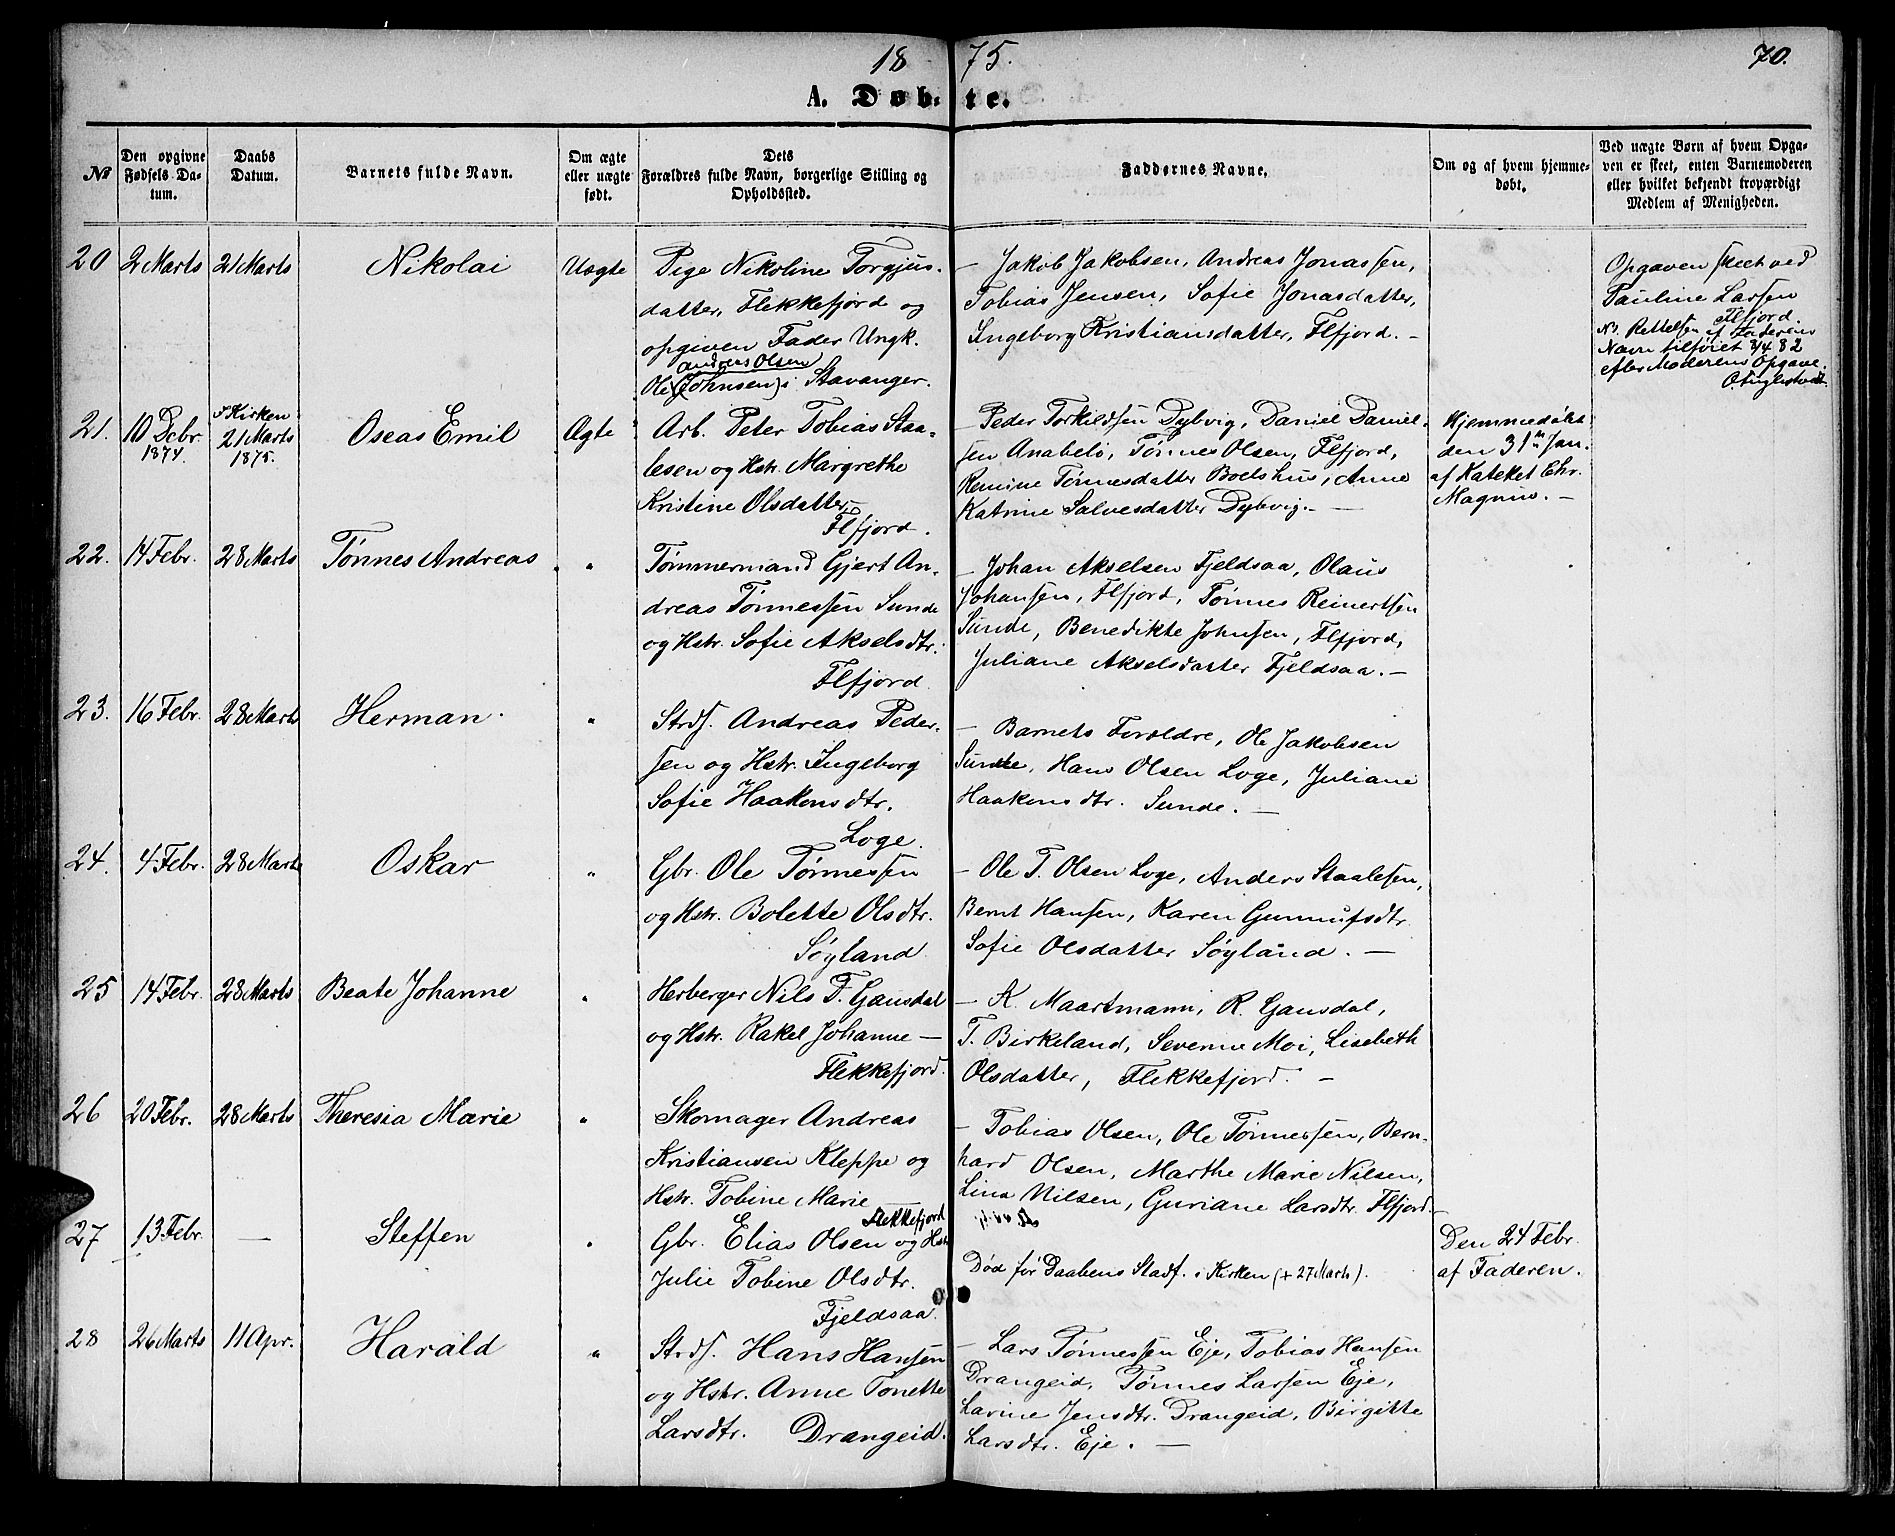 18 75. 70.
A. Døb- te.
No
Den opgivne Fødsels Datum.
Daabs Datum.
Barnets fulde Navn.
Om ægte eller uægte født.
Dets Forældres fulde Navn, borgerlige Stilling og Opholdssted.
Faddernes Navne.
Om og af hvem hjemmedøbt.
Ved uægte Børn af hvem Opgaven er skeet, enten Barnemoderen eller hvilket bekjendt troværdigt Medlem af Menigheden.
20 2 Marts 21 Marts Nikolai Uægte
Pige Nikoline Torgjus-
datter, Flekkefjord og
opgiven Fader Ungk.
Andreas Olsen
Ole (Johnsen) i Stavanger.
- Jakob Jakobsen, Andreas Jonassen,
Tobias Jensen, Sofie Jonasdatter,
Ingeborg Kristiansdatter, Flfjord. -
Opgaven skeet ved
Pauline Larsen
Flfjord.
NB. Rettelsen af Faderens
Navn tilføiet 3/4 82
efter Moderens Opgave.
21. 10 Dcbr. 1874. I Kirken 21 Marts 1875. Oseas Emil Ægte
Arb. Peter Tobias Staa-
lesen og Hstr. Margrethe
Kristine Olsdatter
Flfjord.
- Peder Torkildsen Dybvig, Daniel Daniel-
sen Anabelø, Tønnes Olsen, Flfjord,
Remine Tønnesdatter Boelshus, Anne
Katrine Salvesdatter Dybvig. -
Hjemmedøbt
den 31te Jan.
af Kateket Chr.
Magnus. -
22. 14 Febr. 28 Marts Tønnes Andreas "
Tømmermand Gjert An-
dreas Tønnessen Sunde
og Hstr. Sofie Akselsdtr.
Flfjord.
- Johan Akselsen Fjeldsaa, Olaus
Johansen, Flfjord, Tønnes Reinertsen
Sunde, Benedikte Johnsen, Flfjord,
Juliane Akselsdatter Fjeldsaa. -
23. 16 Febr. 28 Marts Herman. "
Strds. Andreas Peder-
sen og Hstr. Ingeborg
Sofie Haakonsdtr.
Loge.
- Barnets Forældre, Ole Jakobsen
Sunde, Hans Olsen Loge, Juliane
Haakonsdtr. Sunde. -
24. 4 Febr. 28 Marts Oskar "
Gbr. Ole Tønnessen
og Hstr. Bolette Olsdtr.
Søyland
- Ole T. Olsen Loge, Anders Staalesen,
Bernt Hansen, Karen Gunnufsdtr.
Sofie Olsdatter Søyland. -
25 14 Febr. 28 Marts Beate Johanne "
Herberger Nils F. Gausdal
og Hstr. Rakel Johanne -
Flekkefjord.
- K. Maartmann, R. Gausdal,
T. Birkeland, Severine Moi, Lisebeth
Olsdatter, Flekkefjord. -
26 20 Febr. 28 Marts Theresia Marie "
Skomager Andreas
Kristiansen Kleppe og
Hstr. Tobine Marie
Flekkefjord
- Tobias Olsen, Ole Tønnessen, Bern-
hard Olsen, Marthe Marie Nilsen,
Lina Nilsen, Guriane Larsdtr. Flfjord. -
27 13 Febr. - Steffen "
Gbr. Elias Olsen og Hstr.
Julie Tobine Olsdtr.
Fjeldsaa.
Død før Daabens Stadf. i Kirken (+ 27 Marts).
Den 24 Febr.
af Faderen.
28 26 Marts 11 Apr. Harald "
Strds. Hans Hansen
og Hstr. Anne Tonette
Larsdtr. Drangeid.
- Lars Tønnessen Eje, Tobias Hansen
Drangeid, Tønnes Larsen Eje,
Larine Jensdtr. Drangeid, Birgitte
Larsdtr. Eje. -